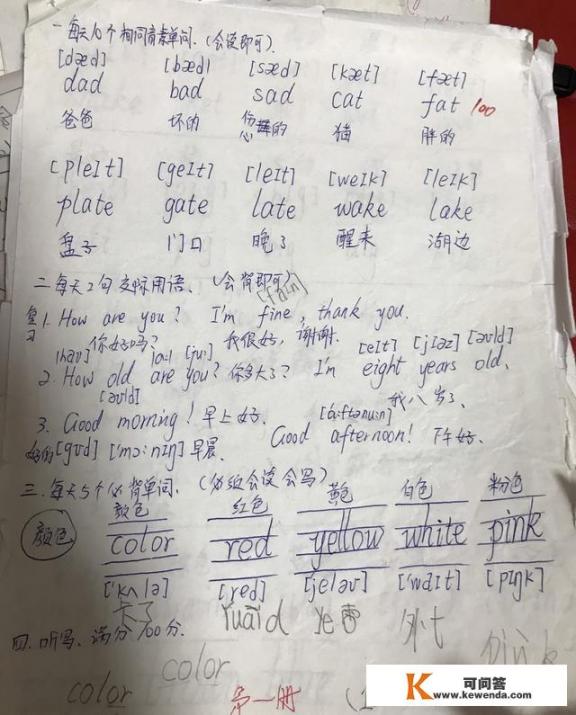 一每天10个相同音素单词.(会读即可).
[dæd] [bæd] [sæd] [kæt] [fæt]
dad bad sad cat fat 100
爸爸 坏的 伤心的 猫 胖的
[pleIt] [geIt] [leIt] [weIk] [leIk]
plate gate late wake lake
盘子 门口 晚了 醒来 湖边
二.每天2句交际用语、(会背即可)
[faɪn]
复习 1. How are you? I'm fine, thank you.
你好吗? 我很好,谢谢.
[hau] [a:] [ju:] [eIt] [jIəz] [əʊld]
2. How old are you? 你多大了? I'm eight years old,
[əʊld] 我八岁了、
3. Good morning! 早上好. Good afternoon! 下午好.
[ɑ:ftənu:n]
好的[gʊd] ['mɔ:nIŋ] 早晨
三.每天5个必背单词. (必须会读会写)
颜色 红色 黄色 白色 粉色
颜色 color red yellow white pink
['kʌlə] [red] [jeləʊ] ['waIt] [pIŋk]
卡了 ruai d ye 外t
四.听写、满分100分.
color color pink
第一册
可问答
www.kewenda.com